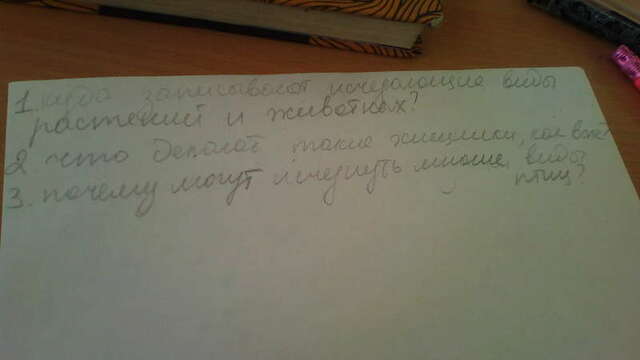 1. куда записывают исчезающие виды
растений и животных?
2. что делают такие хищники, как
3. почему могут исчезнуть многие виды
птиц?